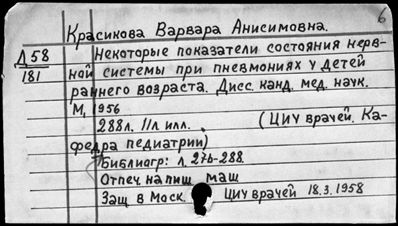 6
Красикова Варвара Анисимовна.
Д58
181
Некоторые показатели состояния нерв-
ной системы при пневмониях у детей
раннего возраста. Дисс. канд. мед. наук.
М, 1956
288л. 11л илл. (ЦИУ врачей. Ка-
федра педиатрии)
Библиогр: л. 276-288.
Отпеч. на пиш маш
Защ в Моск. ЦИУ врачей 18.3.1958